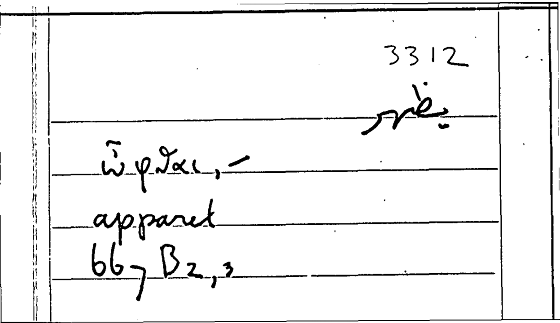 3312
يظهر
ὦφθαι,–
apparet
667 B2,3